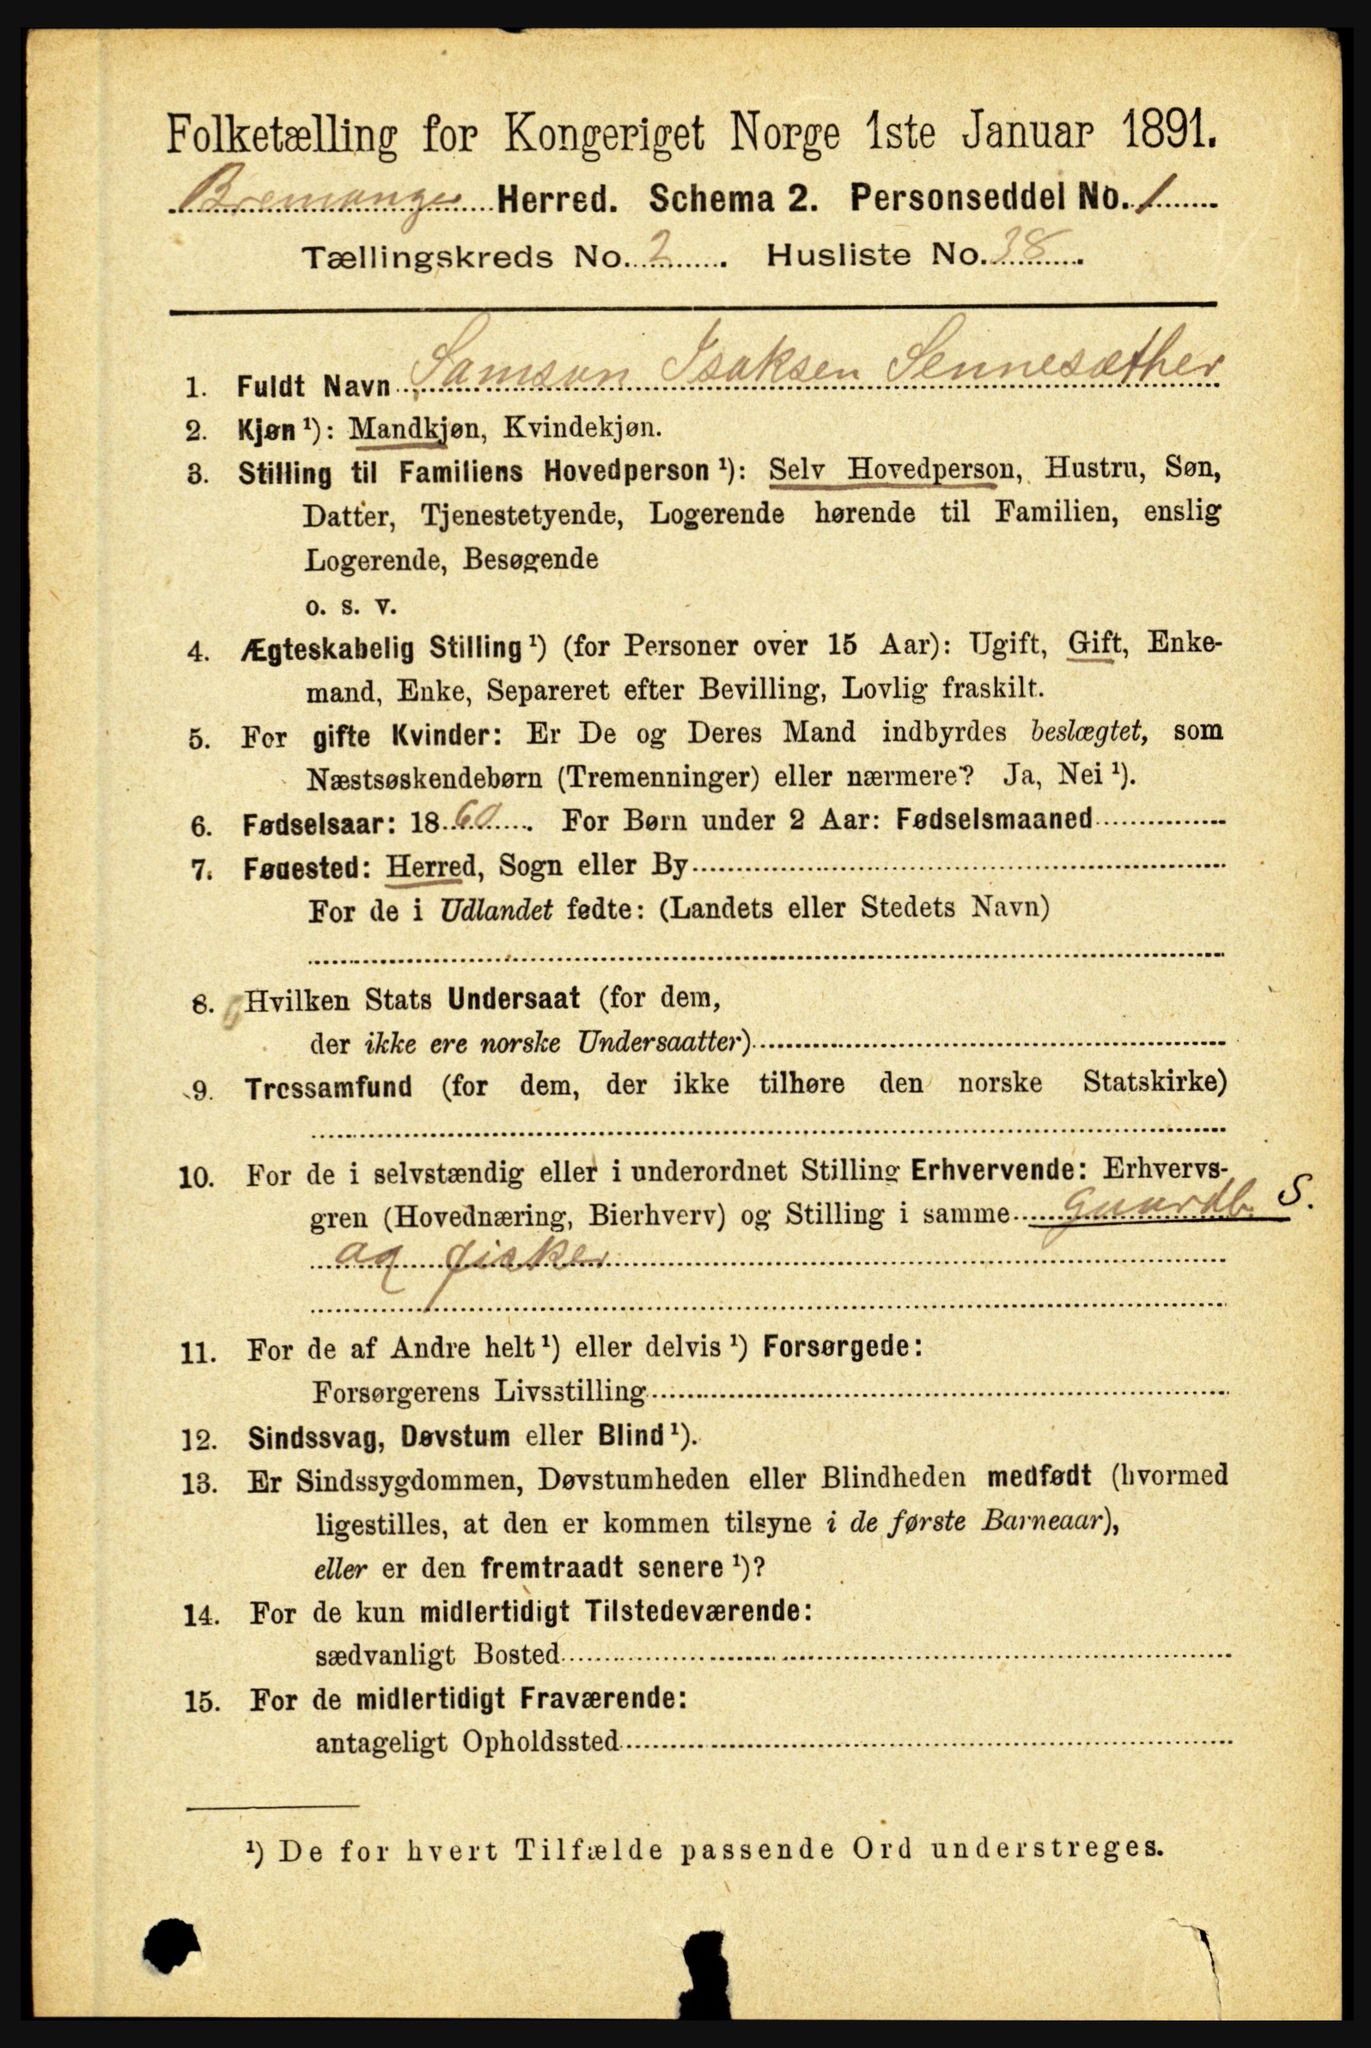 Folketælling for Kongeriget Norge 1ste Januar 1891.
Bremanger Herred. Schema 2. Personseddel No. 1
Tællingskreds No. 2. Husliste No. 38.
1. Fuldt Navn Samson Isaksen Sennesæther
2. Kjøn ¹): Mandkjøn, Kvindekjøn.
3. Stilling til Familiens Hovedperson ¹): Selv Hovedperson, Hustru, Søn,
Datter, Tjenestetyende, Logerende hørende til Familien, enslig
Logerende, Besøgende
o. s. v.
4. Ægteskabelig Stilling ¹) (for Personer over 15 Aar): Ugift, Gift, Enke-
mand, Enke, Separeret efter Bevilling, Lovlig fraskilt.
5. For gifte Kvinder: Er De og Deres Mand indbyrdes beslægtet, som
Næstsøskendebørn (Tremenninger) eller nærmere? Ja, Nei ¹).
6. Fødselsaar: 1860. For Børn under 2 Aar: Fødselsmaaned
7. Fødested: Herred, Sogn eller By
For de i Udlandet fødte: (Landets eller Stedets Navn)
8. Hvilken Stats Undersaat (for dem,
der ikke ere norske Undersaatter)
9. Trossamfund (for dem, der ikke tilhøre den norske Statskirke)
10. For de i selvstændig eller i underordnet Stilling Erhvervende: Erhvervs-
gren (Hovednæring, Bierhverv) og Stilling i samme Gaardb. S.
og fisker
11. For de af Andre helt ¹) eller delvis ¹) Forsørgede:
Forsørgerens Livsstilling
12. Sindssvag, Døvstum eller Blind ¹).
13. Er Sindssygdommen, Døvstumheden eller Blindheden medfødt (hvormed
ligestilles, at den er kommen tilsyne i de første Barneaar),
eller er den fremtraadt senere ¹)?
14. For de kun midlertidigt Tilstedeværende:
sædvanligt Bosted
15. For de midlertidigt Fraværende:
antageligt Opholdssted
¹) De for hvert Tilfælde passende Ord understreges.